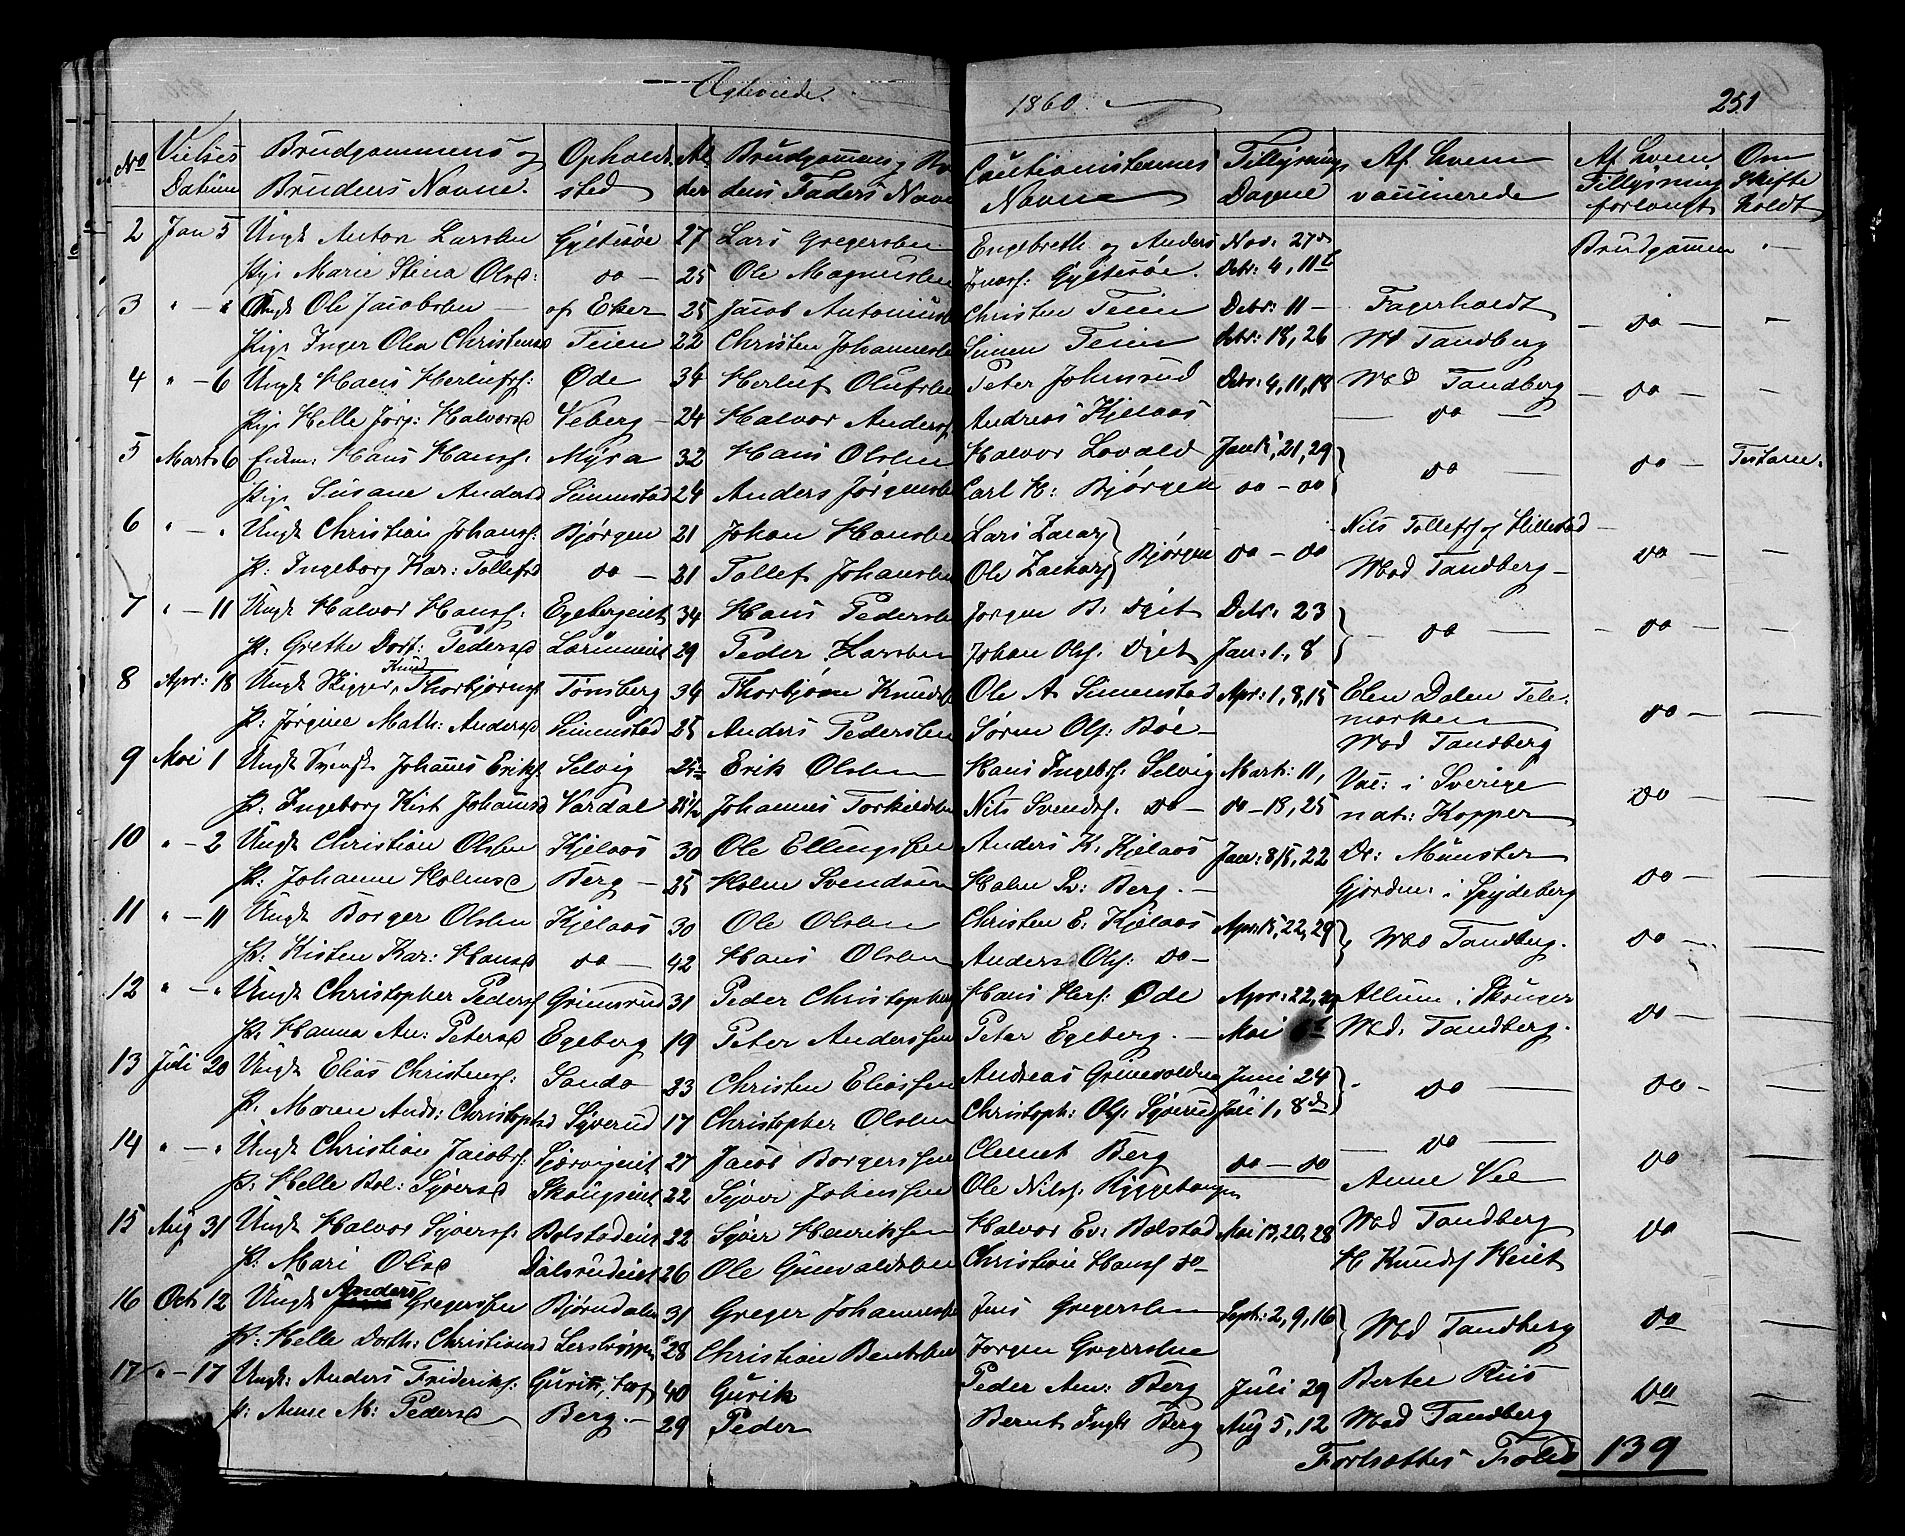 Ægteviede. 1860. 251
No Vielses Datum Brudgommens og Brudens Navne. Opholds sted Al der Brudgommens og Bru dens Faders Navn Cautionisternes Navne Tillysnings Dagne Af hvem vaccinerede Af hvem Tillysning forlangt Om Skifte holdt
2 Jan 5 Ungk Anton Larssen Gyltesöe 27 Lars Gregerssen Engebreth og Anders Nov: 27de Brudgommen —
Pige Marie Stina Olsd: do — 25 Ole Magnussen Gyltesöe. Debr: 4, 11te
3 " — " Ungk Ole Jacobsen — af Eker 25 Jacob Christen Teien Debr: 11 — Fagerholdt — do — —
Pige Inger Olea Christensd Teien 22 Christen Johannessen Simen Teien Debr: 18, 26 Md Tandberg
4 " — 6 Ungk Hans Herlufs: Øde 34 Herluf Olufssen Peter Johnsrud Debr: 4, 11, 18 Mad Tandberg — do — —
Pige Helle Jörg: Halvorsd Veberg — 24 Halvor Anders: Andreas Kjelaas — do —
5 Marts 6 Enkem: Hans Hanss: Myra 32 Hans Olssen Halvor Lovald Jan 15, 21, 29 do — do — Testam.
Pige Susane Andersd Simenstad 24 Anders Jørgenssen Carl H: Bjørgen do — do
6 " — " Ungk Christian Johans: Bjørgen 21 Johan Hanssen Lars Zacary Bjørgen do — do Nils Tollefs: Hillestad —
P: Ingeborg Kar: Tollefsd do — 21 Tollef Johanssen Ole Zachary Mad Tandberg — do —
7 " — 11 Ungk Halvor Hanss: Egebergeiet 34 Hans Pederssen Jørgen B. Debr: 23 — do — — do — —
P: Grethe Dort: Pedersd 29 Peder Larssen Johan Ols: Jan: 1, 8
8 Apr: 18 Ungk Skipper Knud Thorbjörns: Tönsberg 34 Thorbjörn Knuds: Ole A Simenstad Apr: 1, 8, 15 Elen Dalen Tele- do — —
P: Jørgine Math: Andersd Simenstad 25 Anders Pederssen Sören Ols: Böe — marken
Mad Tandberg
9 Mai 1 Ungk Svensk Johannes Eriks: Selvig 25 Erik Olssen Hans Ingebr: Selvig Mart: 11, Vac: i Sverige do — —
P: Ingeborg Kirst Johannesd Vardal 21½ Johannes Torkildssen Nils Svends: do — do — 18, 25 nat: Kopper
10 " — 2 Ungk Christian Olssen Kjelaas 30 Ole Ellingssen Anders K. Kjelaas Jan: 8, 15, 22 Dr: Münster do — —
P: Johanne Holmsd Berg — 25 Holm Svendsen Holm Sv: Berg. — Gjordem: i Spydeberg
11 " — 11 Ungk Borger Olssen Kjelaas 30 Ole Olssen Christen E. Kjelaas Apr: 15, 22, 29 Md Tandberg. do — —
P: Kisten Kar: Hansd do — 42 Hans Olssen Anders Ols: do —
12 " — " Ungk Christopher Peders: Grimsrud 31 Peder Christophers: Hans Herl: Øde Apr: 22, 29 Allum i Skouger do — —
P: Hanna An: Petersd Egeberg 19 Peter Anderssen Peter Egeberg. — Mai Md: Tandberg.
13 Juli 20 Ungk Elias Christens: Sando 23 Christen Eliassen Andreas Juni 24 do — do — —
P. Maren Andr: Christophsd Syverud 17 Christopher Olssen Christoph: Ols: Syverud Juli 1, 8de
14 " — " Ungk Christian Jacobs: 27 Jacob Borgerssen Clemet Berg do — do — do — do —
P. Helle Bol: Syversd Skougseiet 22 Syver Johnssen Ole Nils: Anne Vee
15 Aug 31 Ungk Halvor Syvers: Bolstadeiet 22 Syver Henrikssen Halvor Ev: Bolstad Mai 13, 20, 28 Mad Tandberg do —
P: Mari Olsd Dalsrudeiet 26 Ole Gunvaldssen Christian Hans: do H. Knuds: Heiet
16 Oct: 12 Ungk Anders Gregerssen Bjørndalen 31 Greger Johannessen Jens Gregerssen Sept: 2, 9, 16 Md Tandberg do —
P: Helle Dorth: Christiansd 28 Christian Bentssen Jørgen Gregerssen
17 " — 17 Ungk: Anders Frideriks: 40 Gurik Peder An: Berg Juli 29 Berthe Riis do —
P. Anne M: Pedersd Berg. — 29 Peder Bernt Ingb: Berg Aug 5, 12 Mad Tandberg
Forsættes Folio 139